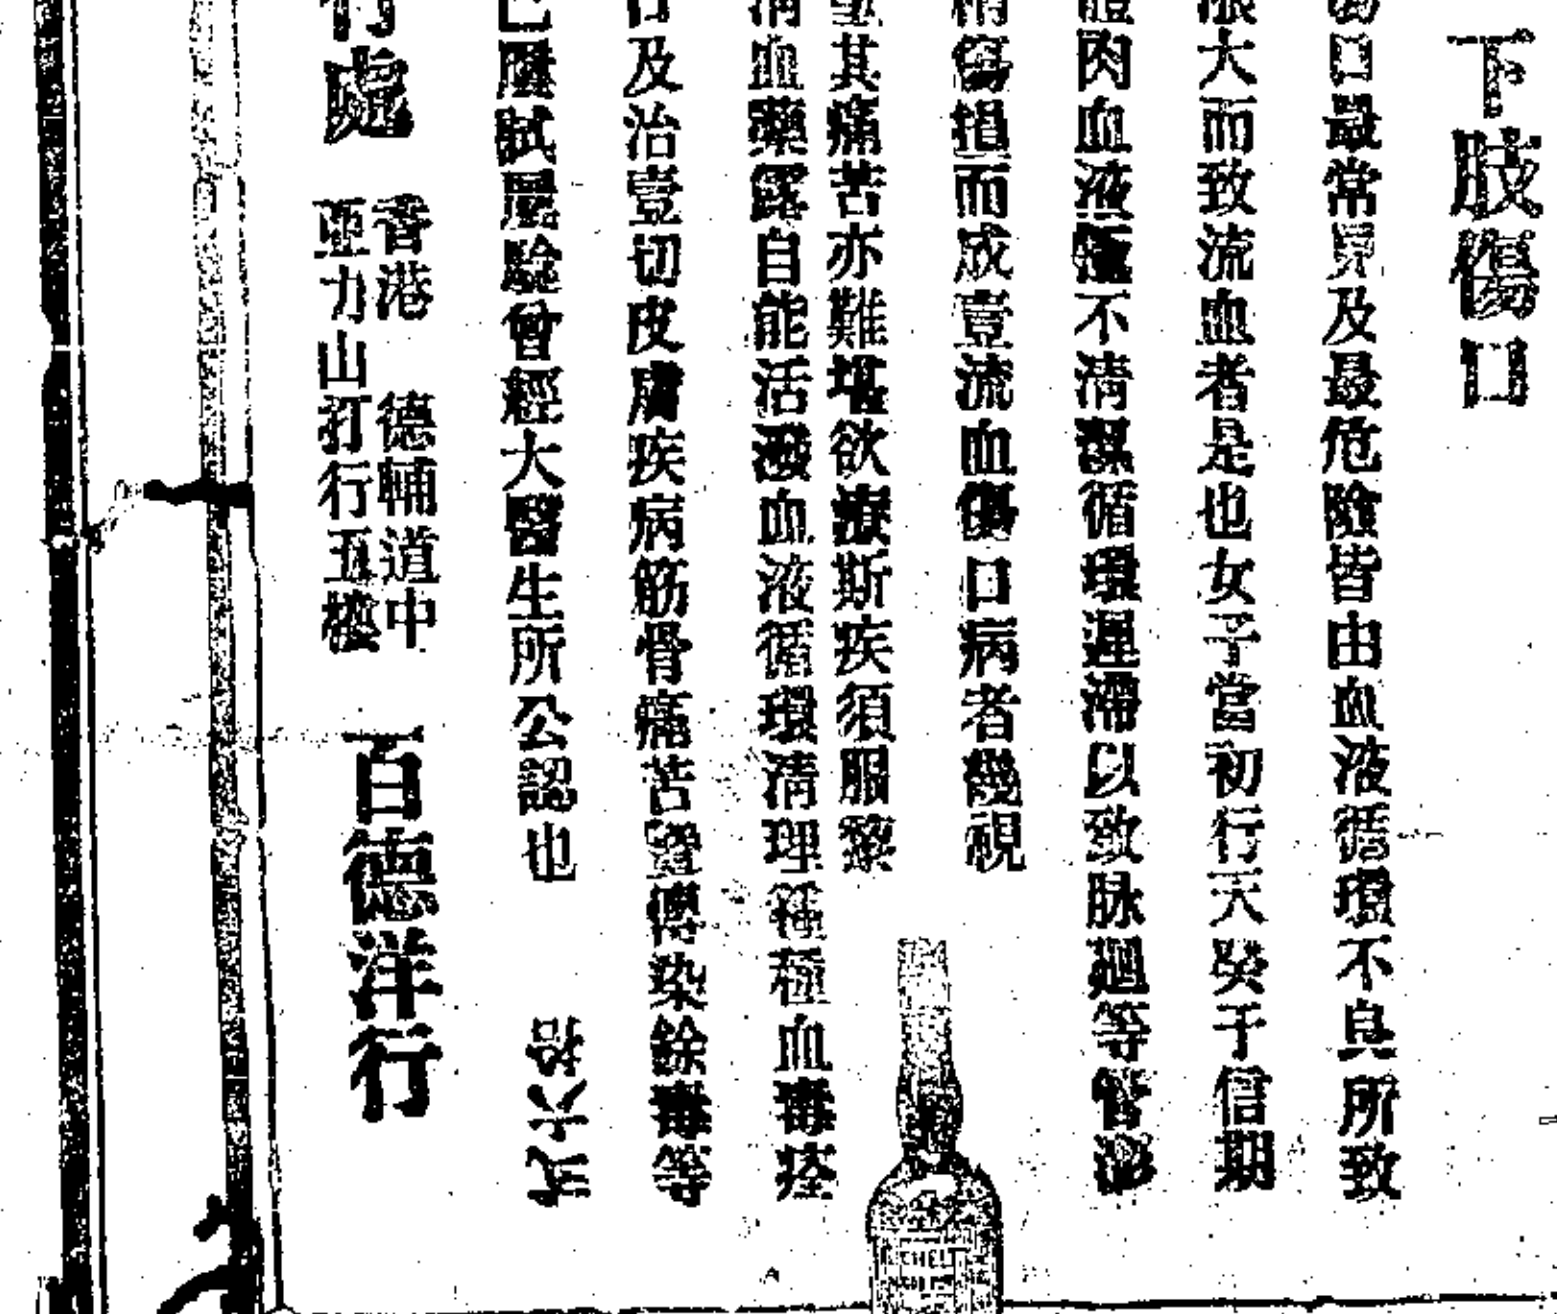 下肢傷口
傷口最常見及最危險皆由血液循環不良所致
漲大而致流血者是也女子當初行天癸于信期
體肉血液極不清潔循環遲滯以致脉廻等管
稍傷損而成壹流血傷口病者幾視
其痛苦亦難堪欲療斯疾須服黎
清血藥露自能活潑血液循環清理種種血毒痊
口及治壹切皮膚疾病筋骨痛苦傳染餘毒等
已屢試屢驗曾經大醫生所公認也
弍六拾
行處
香港 德輔道中
亞力山打行五樓
百德洋行